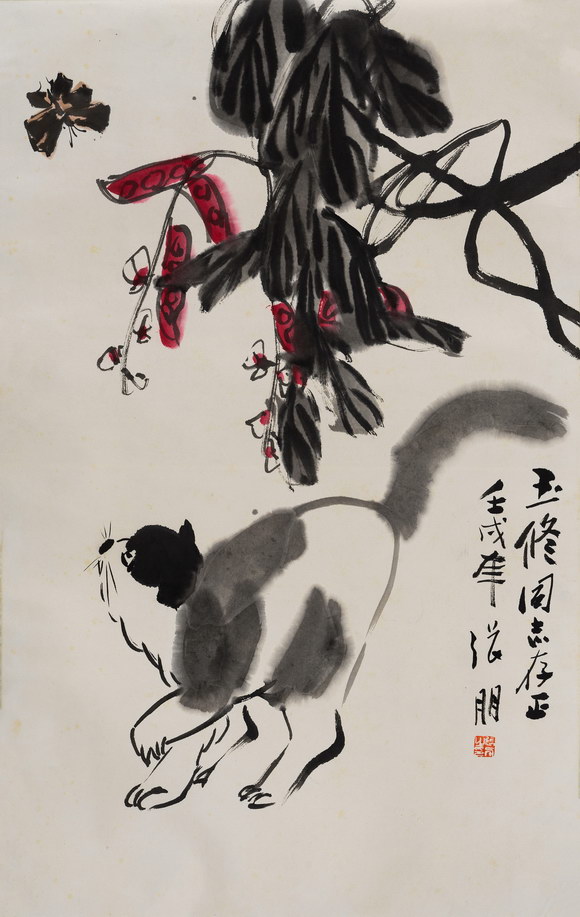 玉修同志存正
壬戌年 张朋